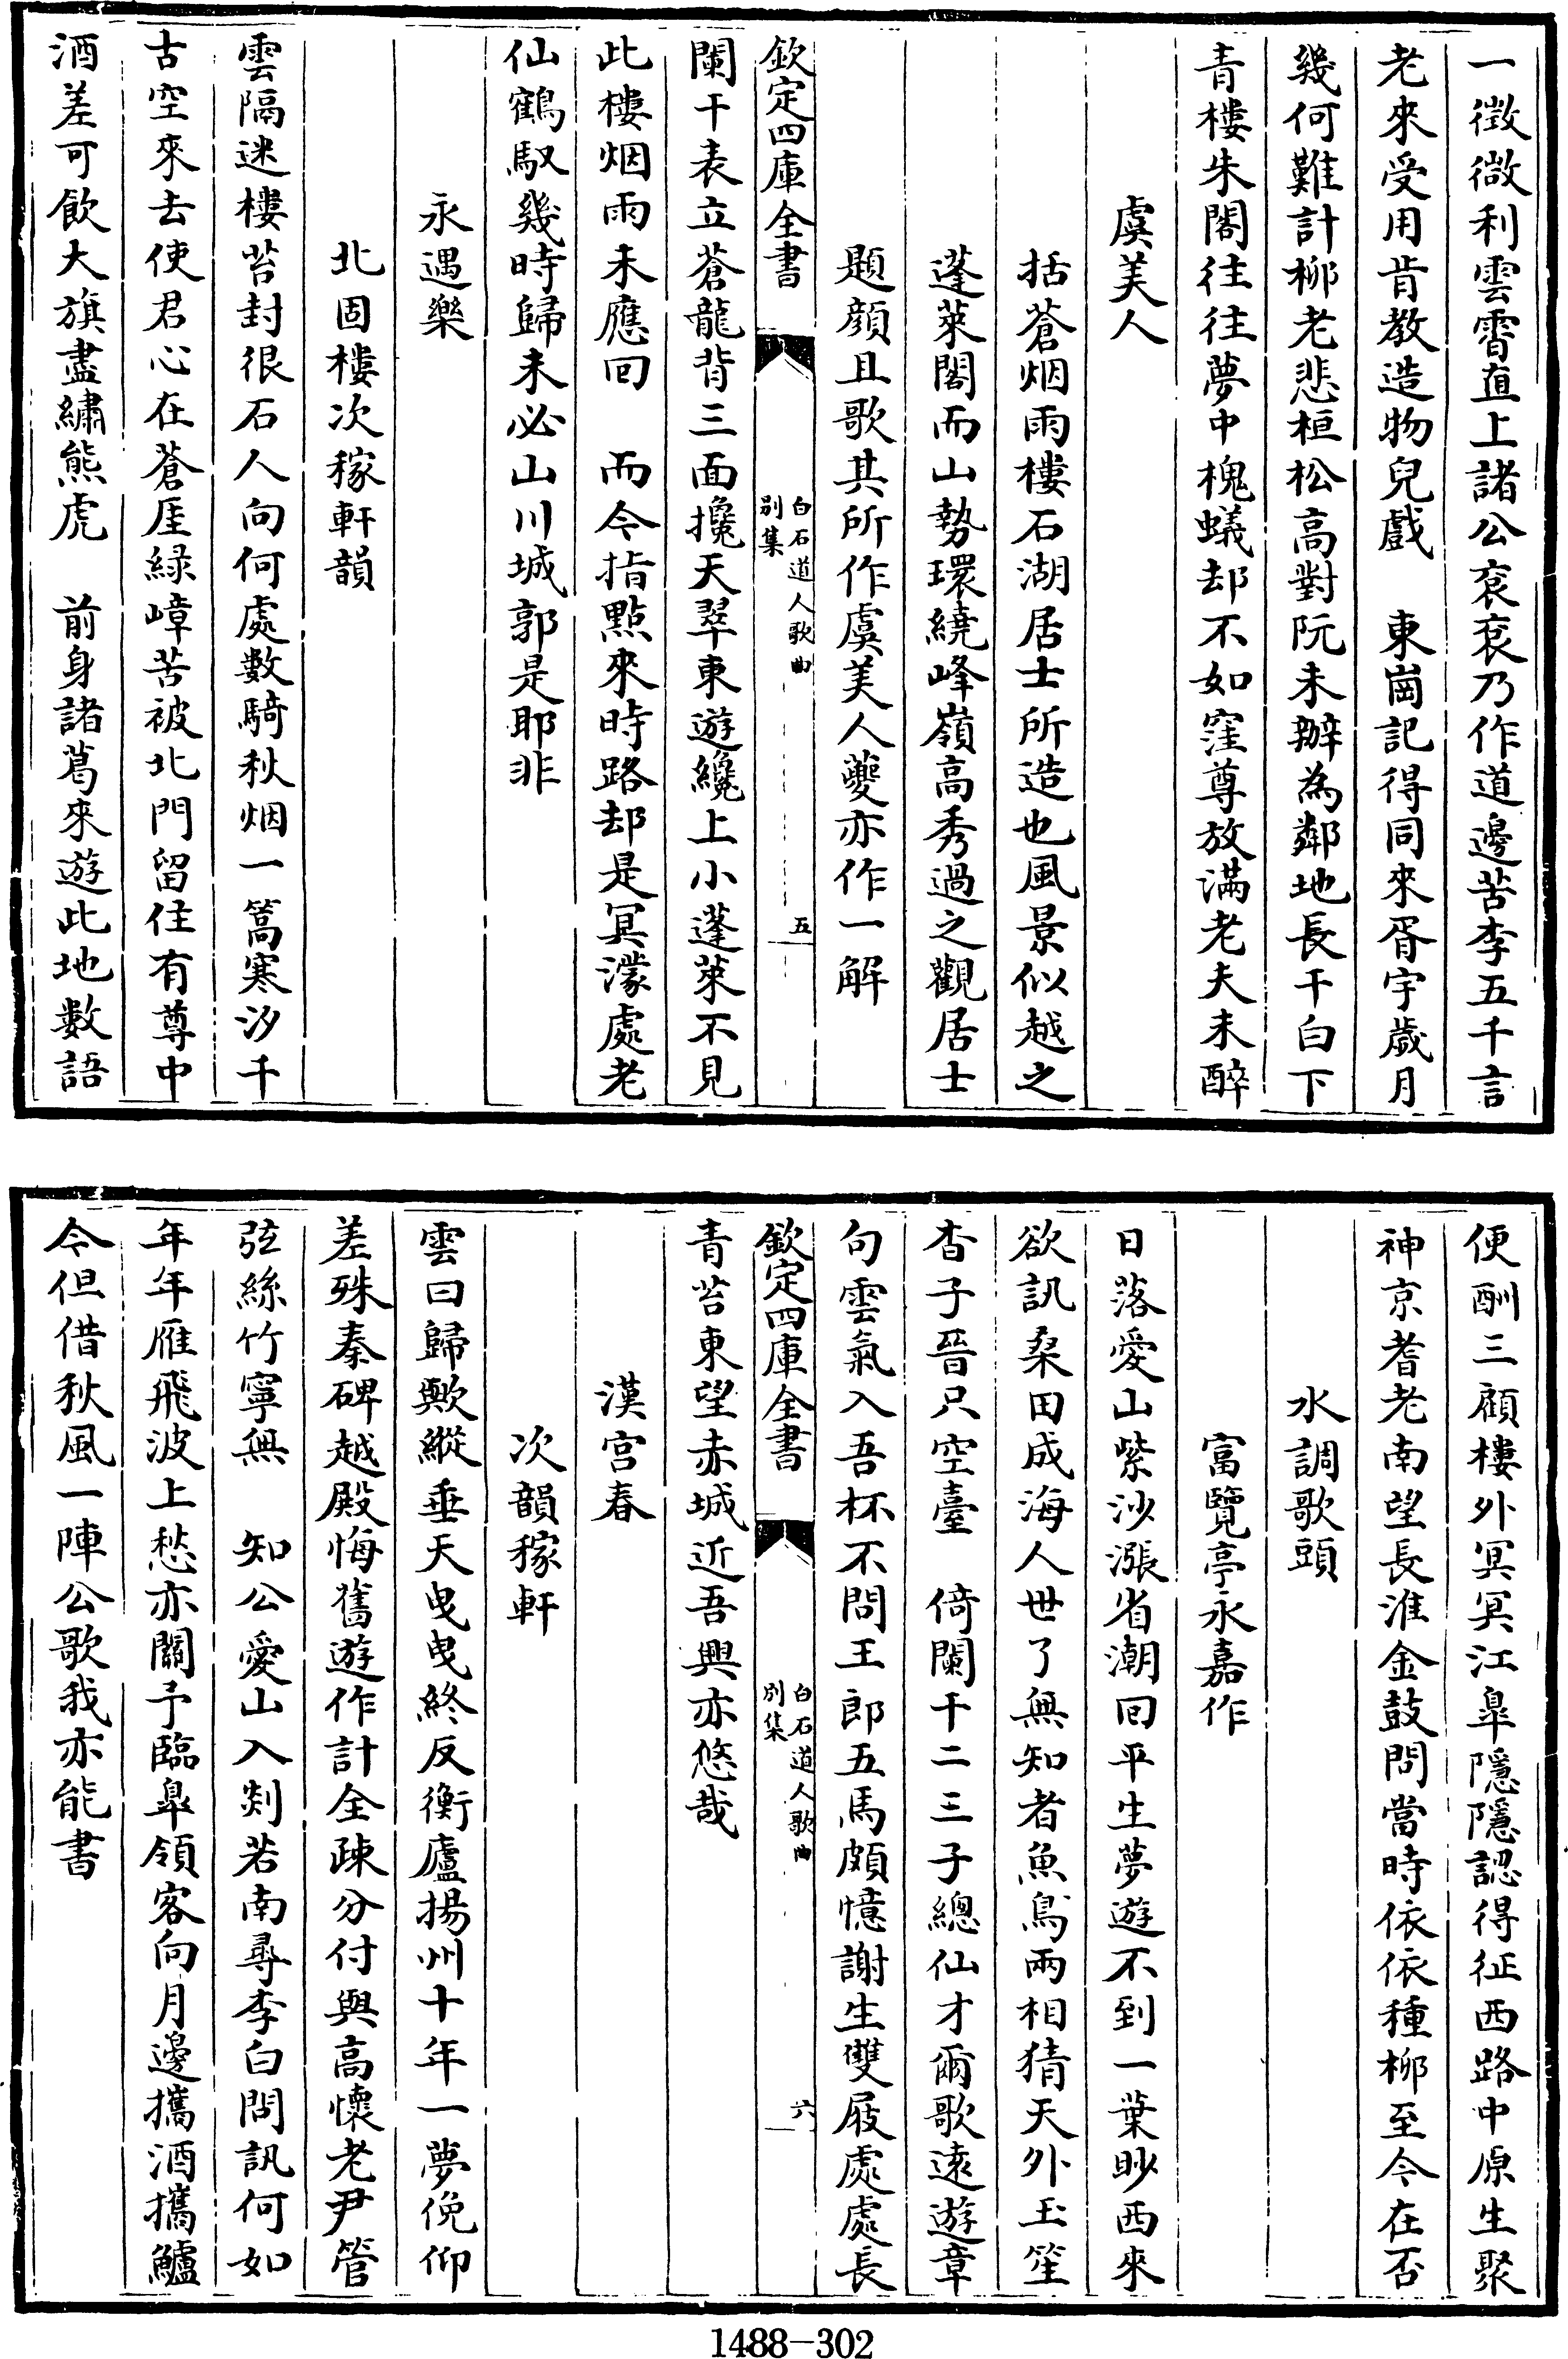 一徴微利雲霄直上諸公衮衮乃作道邊苦李五千言
老來受用肯教造物兒戲　東崗記得同來胥宇歲月
幾何難計柳老悲桓松高對阮未辦為鄰地長干白下
青樓朱閣往往夢中槐蟻却不如窪尊放滿老夫未醉
虞美人
括蒼烟雨樓石湖居士所造也風景似越之
蓬萊閣而山勢環繞峰嶺高秀過之觀居士
題顔且歌其所作虞美人夔亦作一解
欽定四庫全書
白石道人歌曲
別集
五
闌干表立蒼龍背三面攙天翠東遊纔上小蓬萊不見
此樓烟雨未應回　而今指點來時路却是冥濛處老
仙鶴馭幾時歸未必山川城郭是耶非
永遇樂
北固樓次稼軒韻
雲隔迷樓苔封很石人向何處數騎秋烟一篙寒汐千
古空來去使君心在蒼厓緑嶂苦被北門留住有尊中
酒差可飲大旗盡繡熊虎　前身諸葛來遊此地數語
便酬三顧樓外冥冥江臯隱隱認得征西路中原生聚
神京耆老南望長淮金鼓問當時依依種柳至今在否
水調歌頭
富覽亭永嘉作
日落愛山紫沙漲省潮回平生夢遊不到一葉眇西來
欲訊桑田成海人世了無知者魚鳥兩相猜天外玉笙
杳子晉只空臺　倚闌干二三子總仙才爾歌遠遊章
句雲氣入吾杯不問王郎五馬頗憶謝生雙屐處處長
欽定四庫全書
白石道人歌曲
別集
六
青苔東望赤城近吾興亦悠哉
漢宫春
次韻稼軒
雲曰歸歟縱垂天曳曳終反衡廬揚州十年一夢俛仰
差殊秦碑越殿悔舊遊作計全疎分付與高懷老尹管
弦絲竹寧無　知公愛山入剡若南尋李白問訊何如
年年雁飛波上愁亦關予臨臯領客向月邊攜酒攜鱸
今但借秋風一陣公歌我亦能書
1488-302